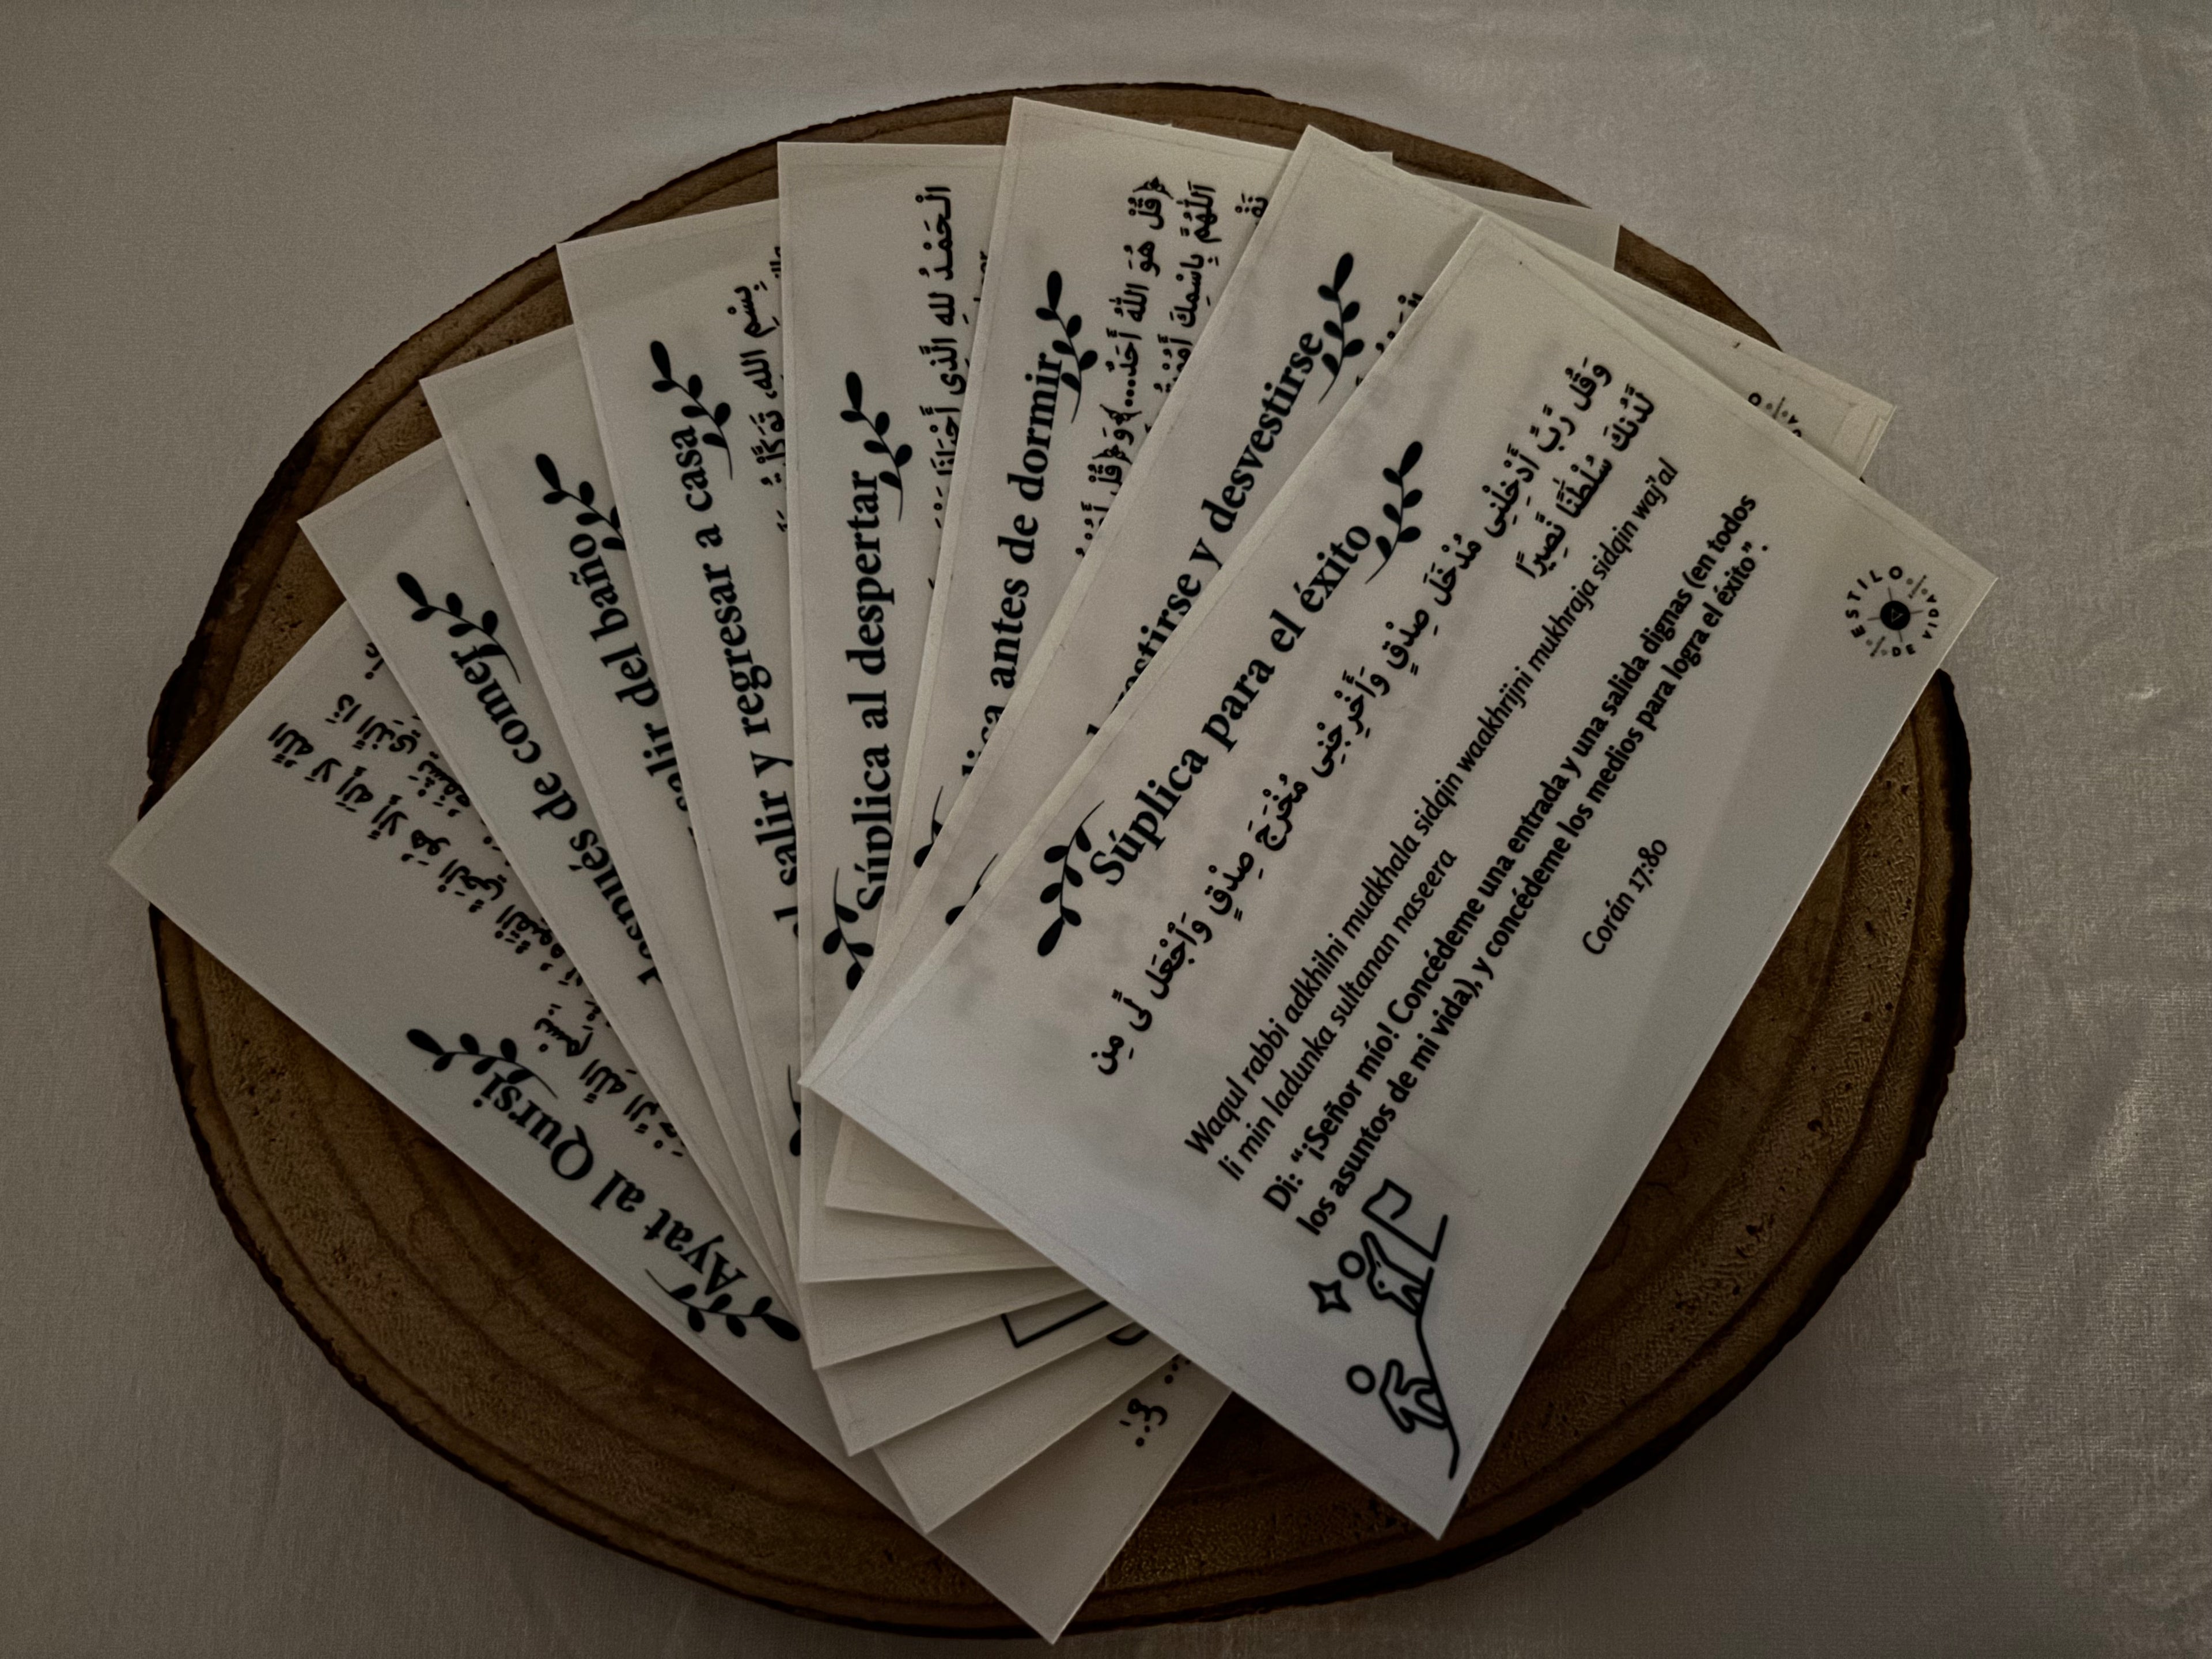 Súplica para el éxito
وَقُل رَّبِّ أَدْخِلْنِى مُدْخَلَ صِدْقٍ وَأَخْرِجْنِى مُخْرَجَ صِدْقٍ وَٱجْعَل لِّى مِن
لَّدُنكَ سُلْطَٰنًا نَّصِيرًا
Waqul rabbi adkhilni mudkhala sidqin waakhrijni mukhraja sidqin waj'al
li min ladunka sultanan naseera
Di: “¡Señor mío! Concédeme una entrada y una salida dignas (en todos
los asuntos de mi vida), y concédeme los medios para logra el éxito”.
Corán 17:80
ESTILO DE VIDA
vestirse y desvestirse
antes de dormir
﴿قُلْ هُوَ اللهُ أَحَدٌ...﴾ وَ﴿قُلْ
اَللّٰهُمَّ بِاسْمِكَ
Súplica al despertar
الْحَمْدُ لله الَّذِي أَحْيَانَا
al salir y regresar a casa
بِسْمِ الله، تَوَكَّلْتُ
salir del baño
después de comer
Ayat al Qursi
بِسْمِ اللَّهِ
اللَّهُ لَا إِلَٰهَ إِلَّا هُوَ الْحَيُّ الْقَيُّومُ
ذَا الَّذِي يَشْفَعُ